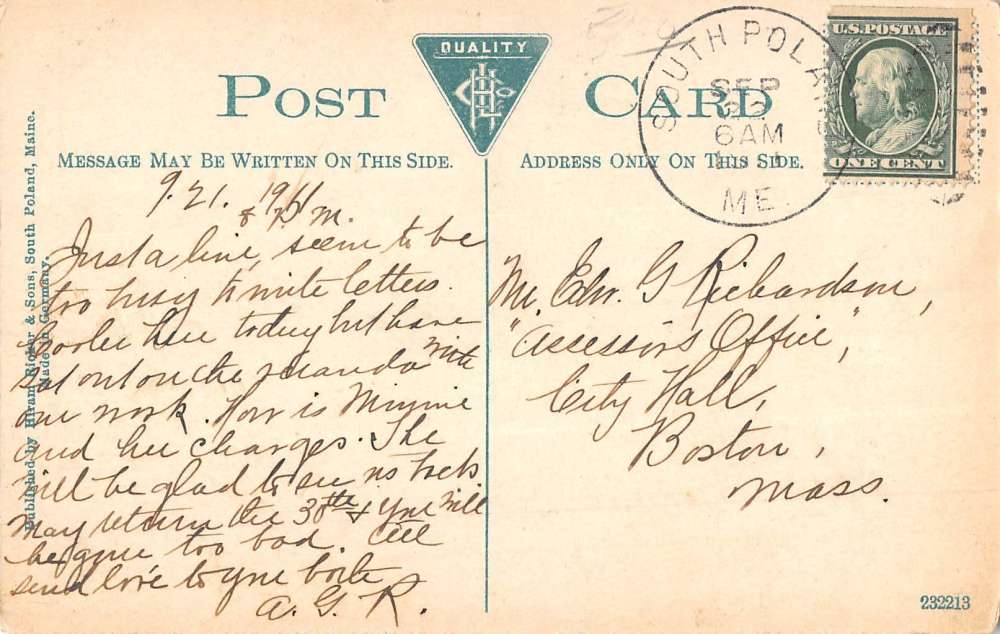 QUALITY
POST CARD
MESSAGE MAY BE WRITTEN ON THIS SIDE.
ADDRESS ONLY ON THIS SIDE.
SOUTH POLAND
SEP
22
6 AM
ME.
U.S. POSTAGE
ONE CENT
9.21.1911
8 P.M.
Just a line, seem to be
too busy to write letters.
Cooler here today but have
sat out on the veranda with
our work. How is Minnie
and her charges. She
will be glad to see us back.
May return the 30th & you will
be gone too bad. All
send love to you both
A. G. R.
Mr. Edw. G Richardson,
"Assessors Office",
City Hall,
Boston,
Mass.
Published by Hiram Ricker & Sons, South Poland, Maine.
Made in Germany.
232213